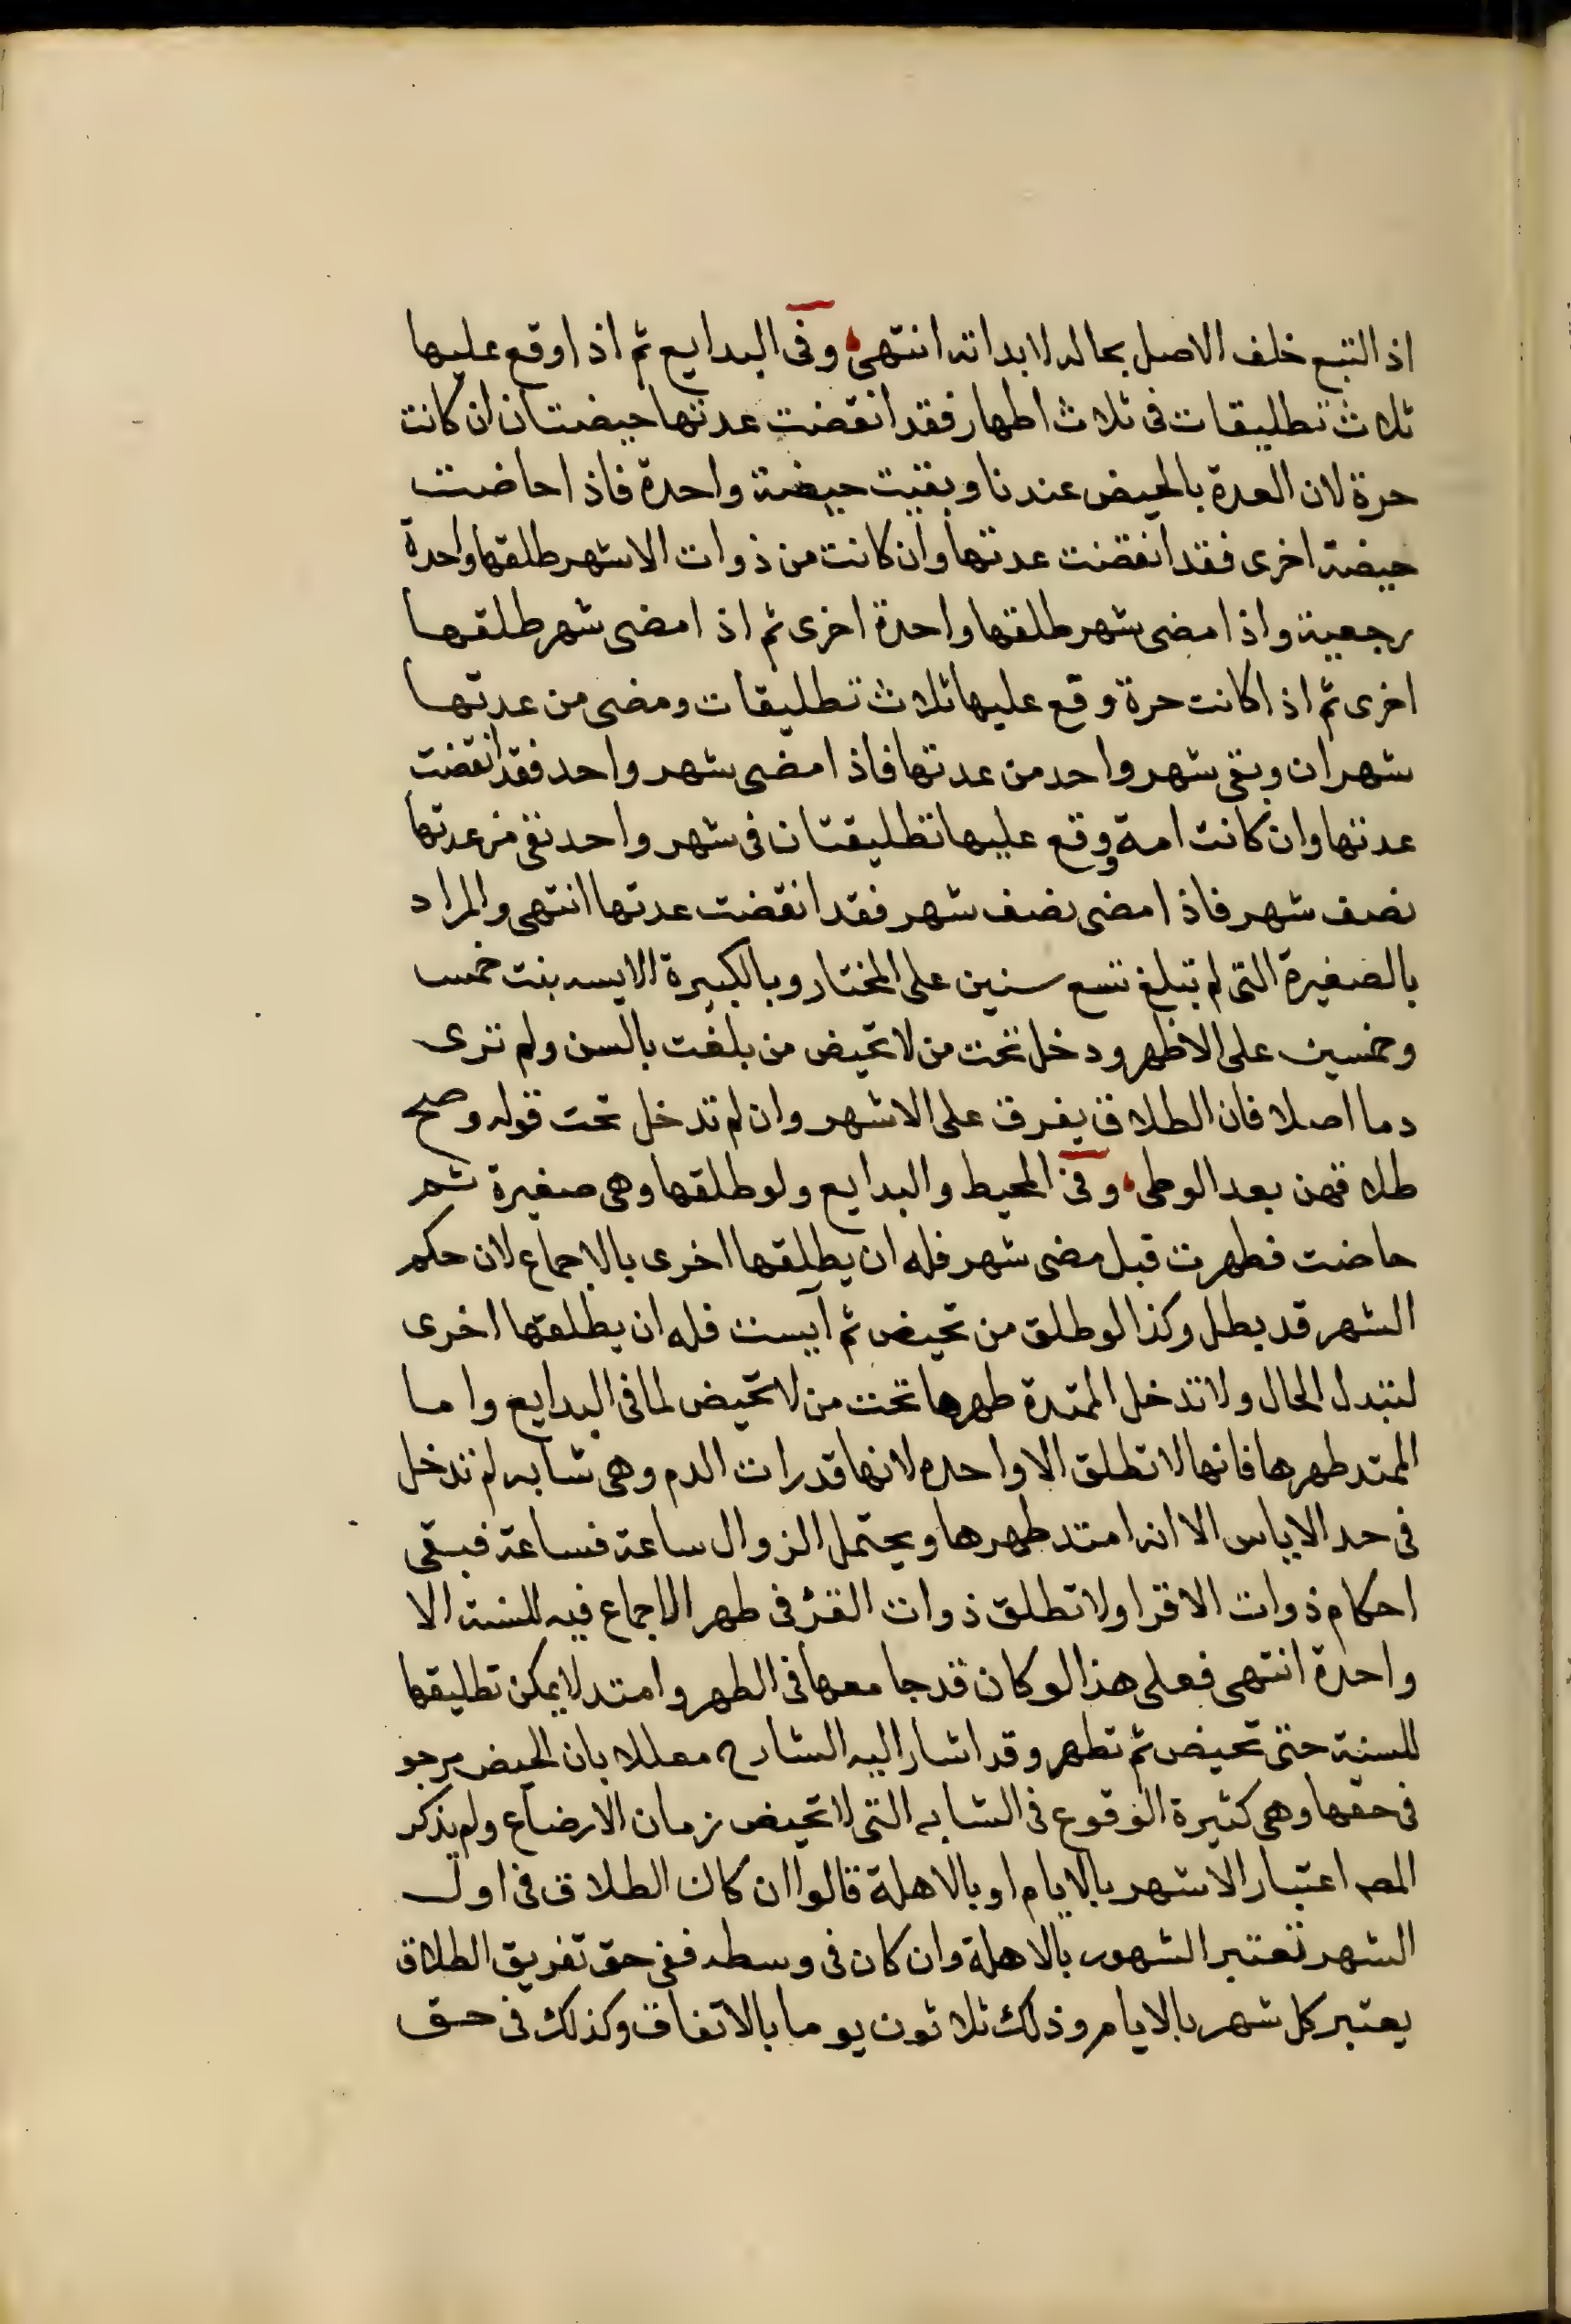 اذ التبع خلف الاصل بحاله لا بداته انتهى وفى البدايع ثم اذا وقع عليها
ثلاث تطليقات فى ثلاث اطهار فقد انقضت عدتها حيضتان ان كانت
حرة لان العدة بالحيض عندنا وبقيت حيضة واحدة فاذا حاضت
حيضة اخرى فقد انقضت عدتها وان كانت من ذوات الاشهر طلقها واحدة
رجعية واذا مضى شهر طلقها واحدة اخرى ثم اذا مضى شهر طلقها
اخرى ثم اذا كانت حرة وقع عليها ثلاث تطليقات ومضى من عدتها
شهران وبقى شهر واحد من عدتها فاذا مضى شهر واحد فقد انقضت
عدتها وان كانت امة ووقع عليها تطليقتان فى شهر واحد بقى من عدتها
نصف شهر فاذا مضى نصف شهر فقد انقضت عدتها انتهى والمراد
بالصغيرة التى لم تبلغ تسع سنين على المختار وبالكبيرة الايسه بنت خمس
وخمسين على الاظهر ودخل تحت من لا تحيض من بلغت بالسن ولم ترى
دما اصلا فان الطلاق يفرق على الاشهر وان لم تدخل تحت قوله وصح
طلاقهن بعد الوطى وفى المحيط والبدايع ولو طلقها وهى صغيرة ثم
حاضت فطهرت قبل مضى شهر فله ان يطلقها اخرى بالاجماع لان حكم
الشهر قد بطل وكذا لو طلق من تحيض ثم آيست فله ان يطلقها اخرى
لتبدل الحال ولا تدخل الممتدة طهرها تحت من لا تحيض لما فى البدايع واما
الممتد طهرها فانها لا تطلق الا واحده لانها قد رات الدم وهى شابه لم تدخل
فى حد الاياس الا انه امتد طهرها ويحتمل الزوال ساعة فساعة فبقى
احكام ذوات الاقرا ولا تطلق ذوات القرء فى طهر لاجماع فيه للسنة الا
واحدة انتهى فعلى هذا لو كان قد جامعها فى الطهر وامتد لا يمكن تطليقها
للسنة حتى تحيض ثم تطهر وقد اشار اليه الشارح معللا بان الحيض مرجو
فى حقها وهى كثيرة الوقوع فى الشابه التى لا تحيض زمان الارضاع ولم يذكر
المصه اعتبار الاشهر بالايام او بالاهلة قالوا ان كان الطلاق فى اول
الشهر تعتبر الشهور بالاهلة وان كان فى وسطه ففى حق تفريق الطلاق
يعتبر كل شهر بالايام وذلك ثلاثون يوما بالاتفاق وكذلك فى حق